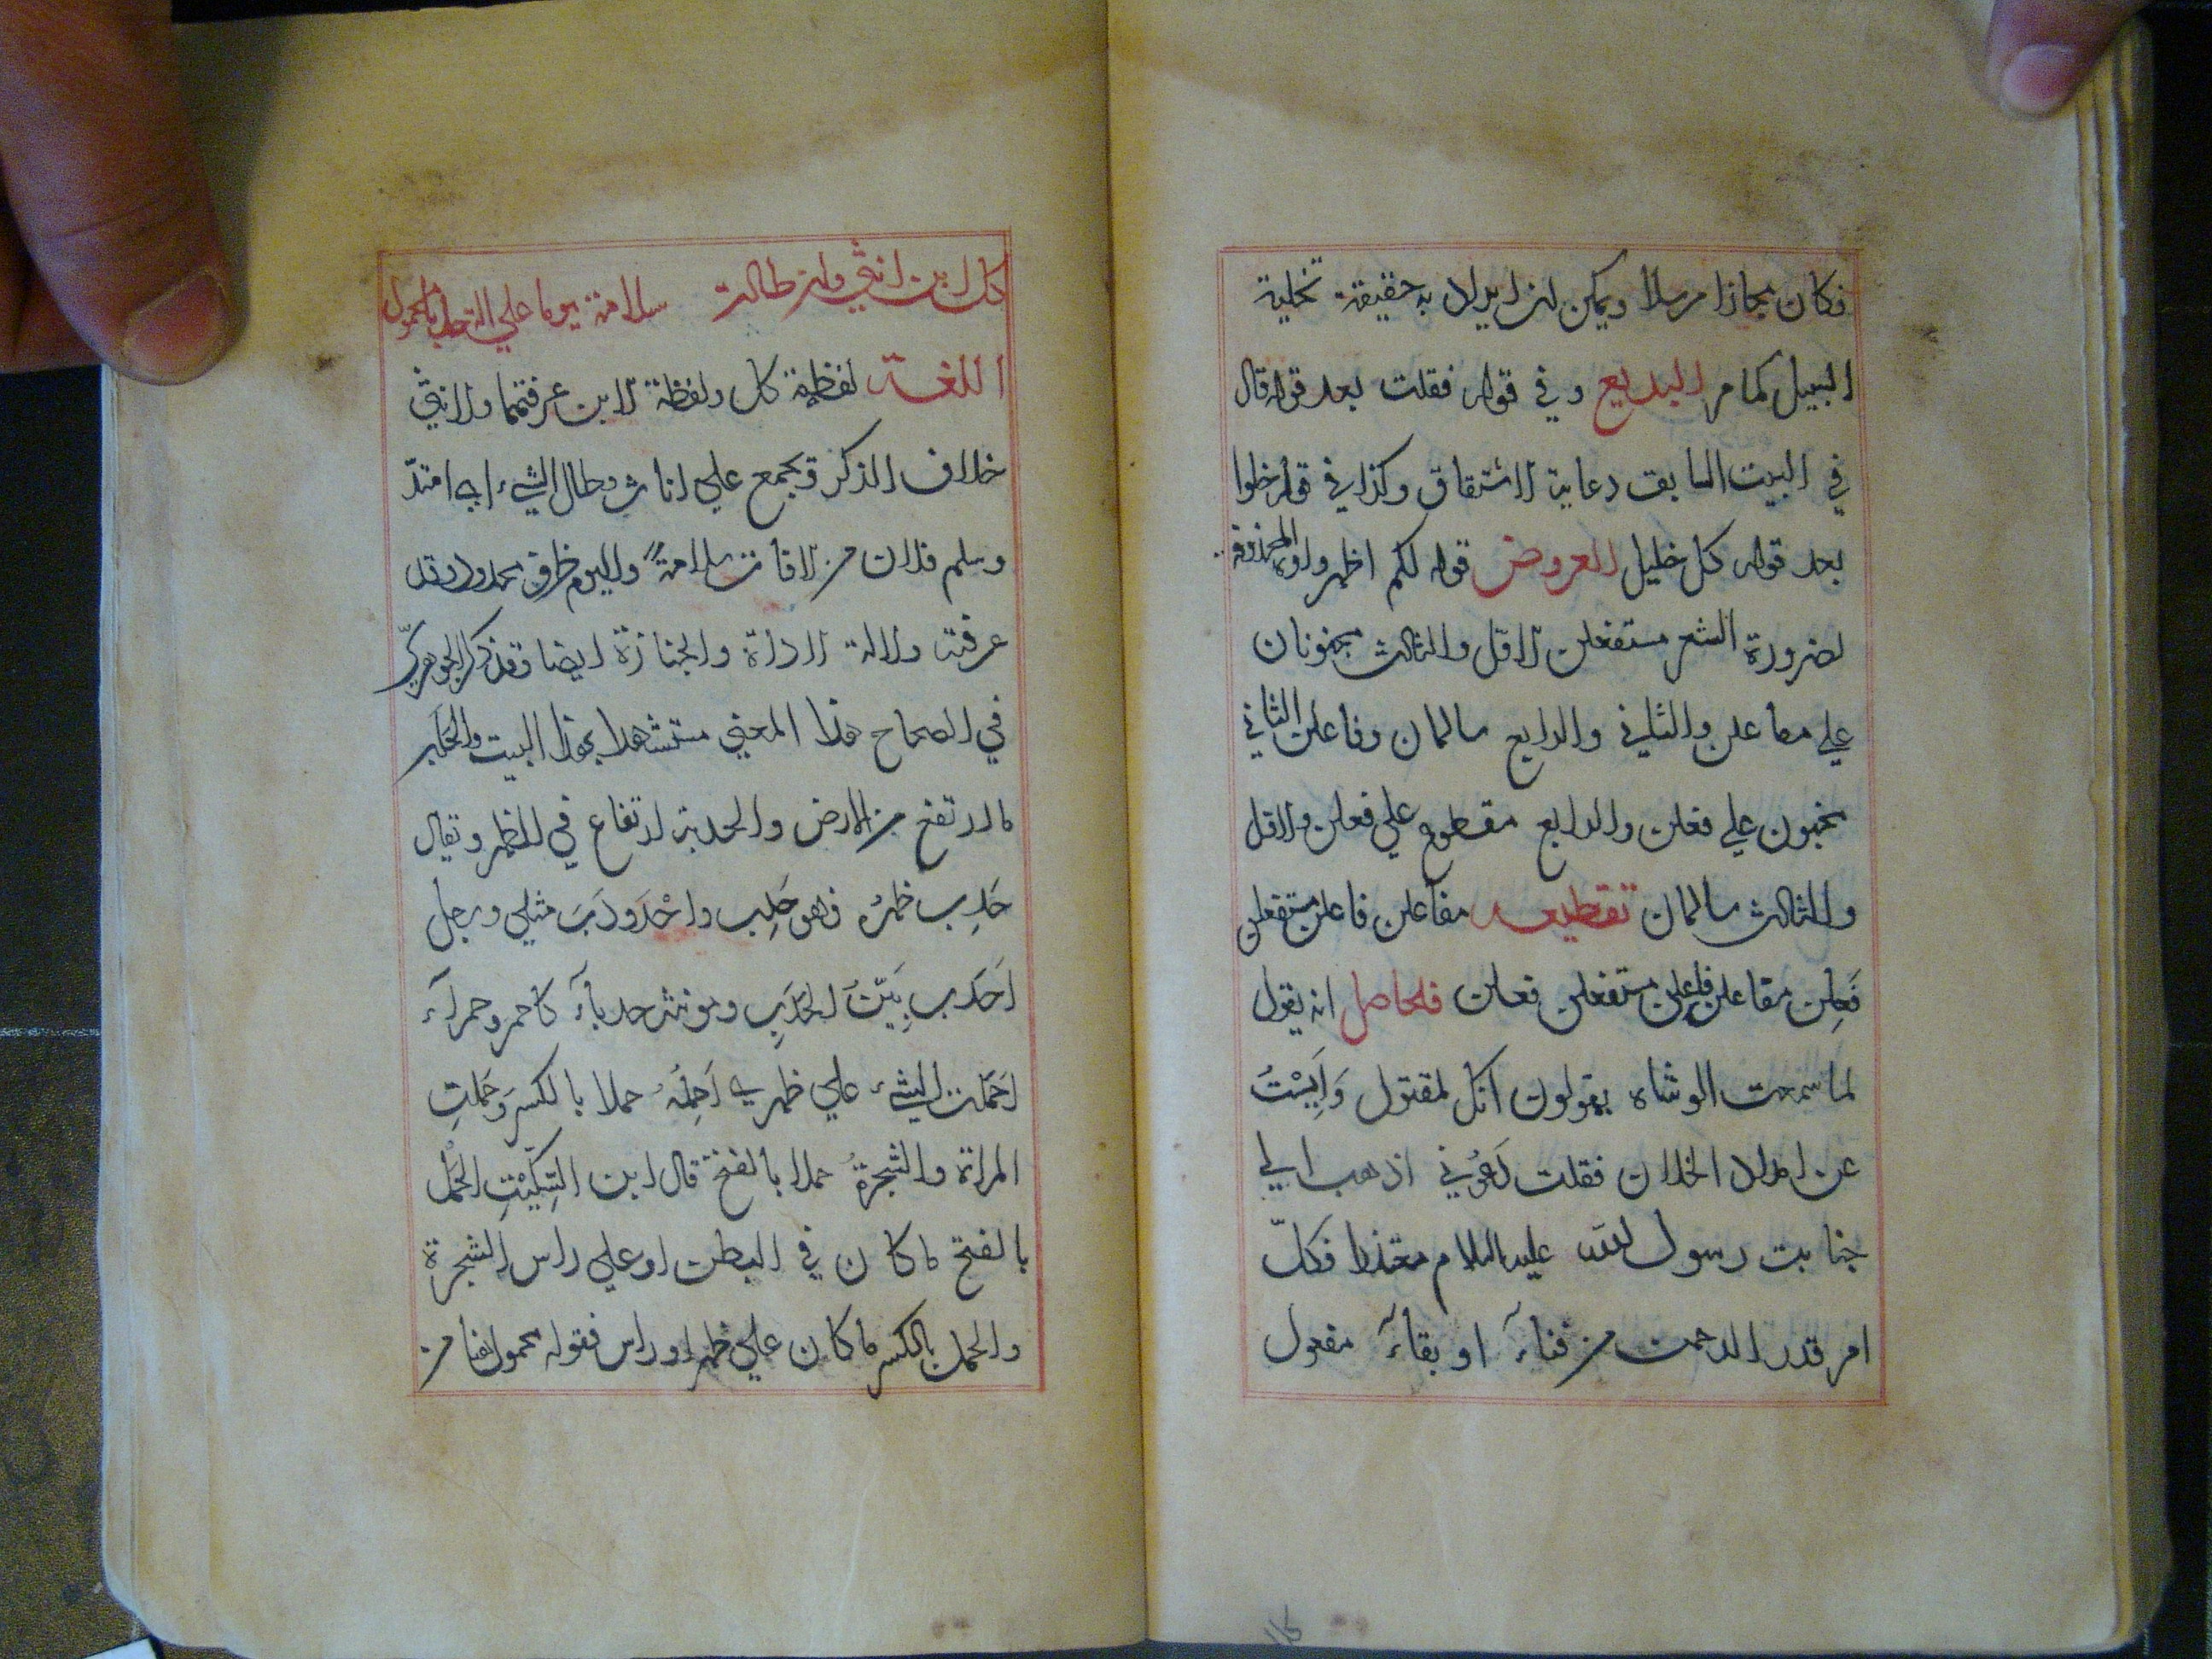 فكان مجازا مرسلا ويمكن ان يراد به حقيقة تخلية
السبيل كما مر البديع وفي قوله فقلت بعد قوله قال
في البيت السابق رعاية الاشتقاق وكذا في قوله خلوا
بعد قوله كل خليل العروض قوله لكم اظهر واوه المحذوفة
لضرورة الشعر مستفعلن الاول والثالث مخبونان
علي مفاعلن والثاني والرابع سالمان وفاعلن الثاني
مخبون علي فعلن والرابع مقطوع علي فعلن والاول
والثالث سالمان تقطيعه مفاعلن فاعلن مستفعلن
فَعِلن مفاعلن فاعلن مستفعلن فعلن فلحاصل انه يقول
لما سمعت الوشاه يقولون انك لمقتول وَاَيِسْتُ
عن امداد الخلان فقلت دَعُوني اذهب الي
جنابت رسول الله عليه السلام معتذرا فكلّ
امر قدر الرحمن من فناءٓ او بقاءٓ مفعول
كل ابن انثي وان طالت سلامته يوما علي الة حدباء محمول
اللغة لفظة كل ولفظة الابن عرفتهما والانثي
خلاف الذكر ويجمع علي اناث وطال الشيء اي امتدّ
وسلم فلان من الافات سلامةً واليوم ظرف محدود وقد
عرفته والالة الاداة والجنازة ايضا وقد ذكر الجوهريّ
في الصحاح هذا المعني مستشهدا بهذا البيت والحَدَب
ما ارتفع من الارض والحدبة ارتفاع في الظهر ويقال
حَدِب ظهرُه فهو حَدِب واحْدَودَبَ مثله ورجل
اَحدَب بَيّتُ الحَدَبِ ومونثه حدباءٓ كاحمر وحمراءٓ
احَمَلت الشيء علي ظهري اَحمِلُهُ حملا بالكسر وَحَملتِ
المراة والشجرةُ حملا بالفتح قال ابن السِّكِّيْتِ الحَمْل
بالفتح ما كان في البطن او علي راس الشجرة
والحمل بالكسر ما كان علي ظهر او راس فقوله محمول هنا من